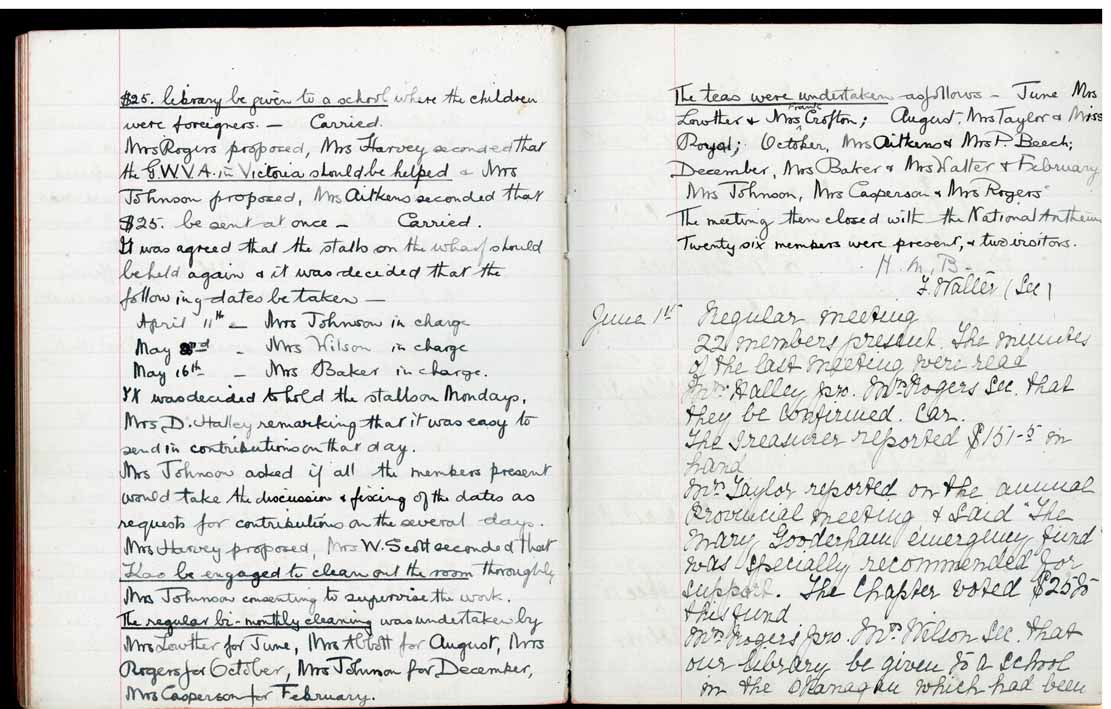 $25. library be given to a school where the children
were foreigners. — Carried.
Mrs Rogers proposed, Mrs Harvey seconded that
the G.W.V.A. in Victoria should be helped & Mrs
Johnson proposed, Mrs Aitkens seconded that
$25. be sent at once — Carried.
It was agreed that the stalls on the wharf should
be held again & it was decided that the
following dates be taken —
April 11th — Mrs Johnson in charge
May 2nd — Mrs Wilson in charge
May 16th — Mrs Baker in charge.
It was decided to hold the stalls on Mondays,
Mrs D. Halley remarking that it was easy to
send in contributions on that day.
Mrs Johnson asked if all the members present
would take the discussion & fixing of the dates as
requests for contributions on the several days.
Mrs Harvey proposed, Mrs W. Scott seconded that
be engaged to clean out the room thoroughly
Mrs Johnson consenting to supervise the work.
The regular bi-monthly cleaning was undertaken by
Mrs Lowther for June, Mrs Abbott for August, Mrs
Rogers for October, Mrs Johnson for December,
Mrs Casperson for February.
The teas were undertaken as follows — June Mrs
Lowther & Mrs Frank Crofton; August, Mrs Taylor & Miss
Royal; October, Mrs Aitkens & Mrs P. Beech;
December, Mrs Baker & Mrs Walter & February
Mrs Johnson, Mrs Casperson & Mrs Rogers
The meeting then closed with the National Anthem
Twenty six members were present, & two visitors.
H. M. B—
F. Walter (Sec)
June 1st Regular meeting
22 members present. The minutes
of the last meeting were read
Mrs Halley pro. Mrs Rogers sec. that
they be confirmed. Car.
The Treasurer reported $151-5 in
hand
Mrs Taylor reported on the annual
Provincial meeting, & said "The
Mary Gooderham emergency fund"
was specially recommended for
support. The Chapter voted $25 to
this fund
Mrs Rogers pro. Mrs Wilson sec. that
our library be given to a school
in the Okanagan which had been